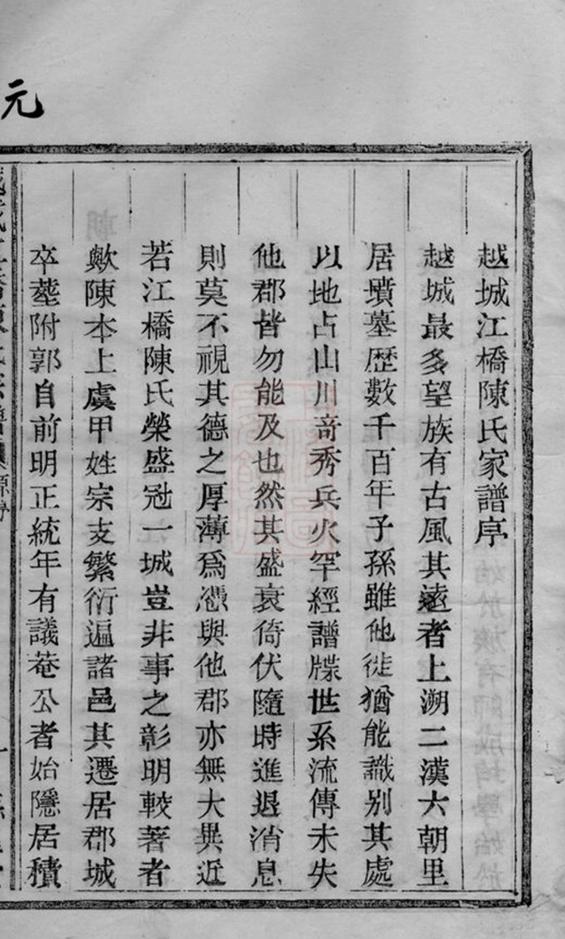 元
越城江橋陳氏家譜序
越城最多望族有古風其遠者上溯二漢六朝里
居墳墓歷數千百年子孫雖他徙猶能識別其處
以地占山川竒秀兵火罕經譜牒世系流傳未失
他郡皆勿能及也然其盛衰倚伏隨時進退消息
則莫不視其德之厚薄爲憑與他郡亦無大異近
若江橋陳氏榮盛冠一城豈非事之彰明較著者
歟陳本上虞甲姓宗支繁衍遍諸邑其遷居郡城
卒塟附郭自前明正統年有議菴公者始隱居積